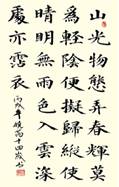 山光物態弄春輝莫
為輕陰便擬歸縱使
晴明無雨色入雲深
處亦霑衣
丙戌年十四歲書